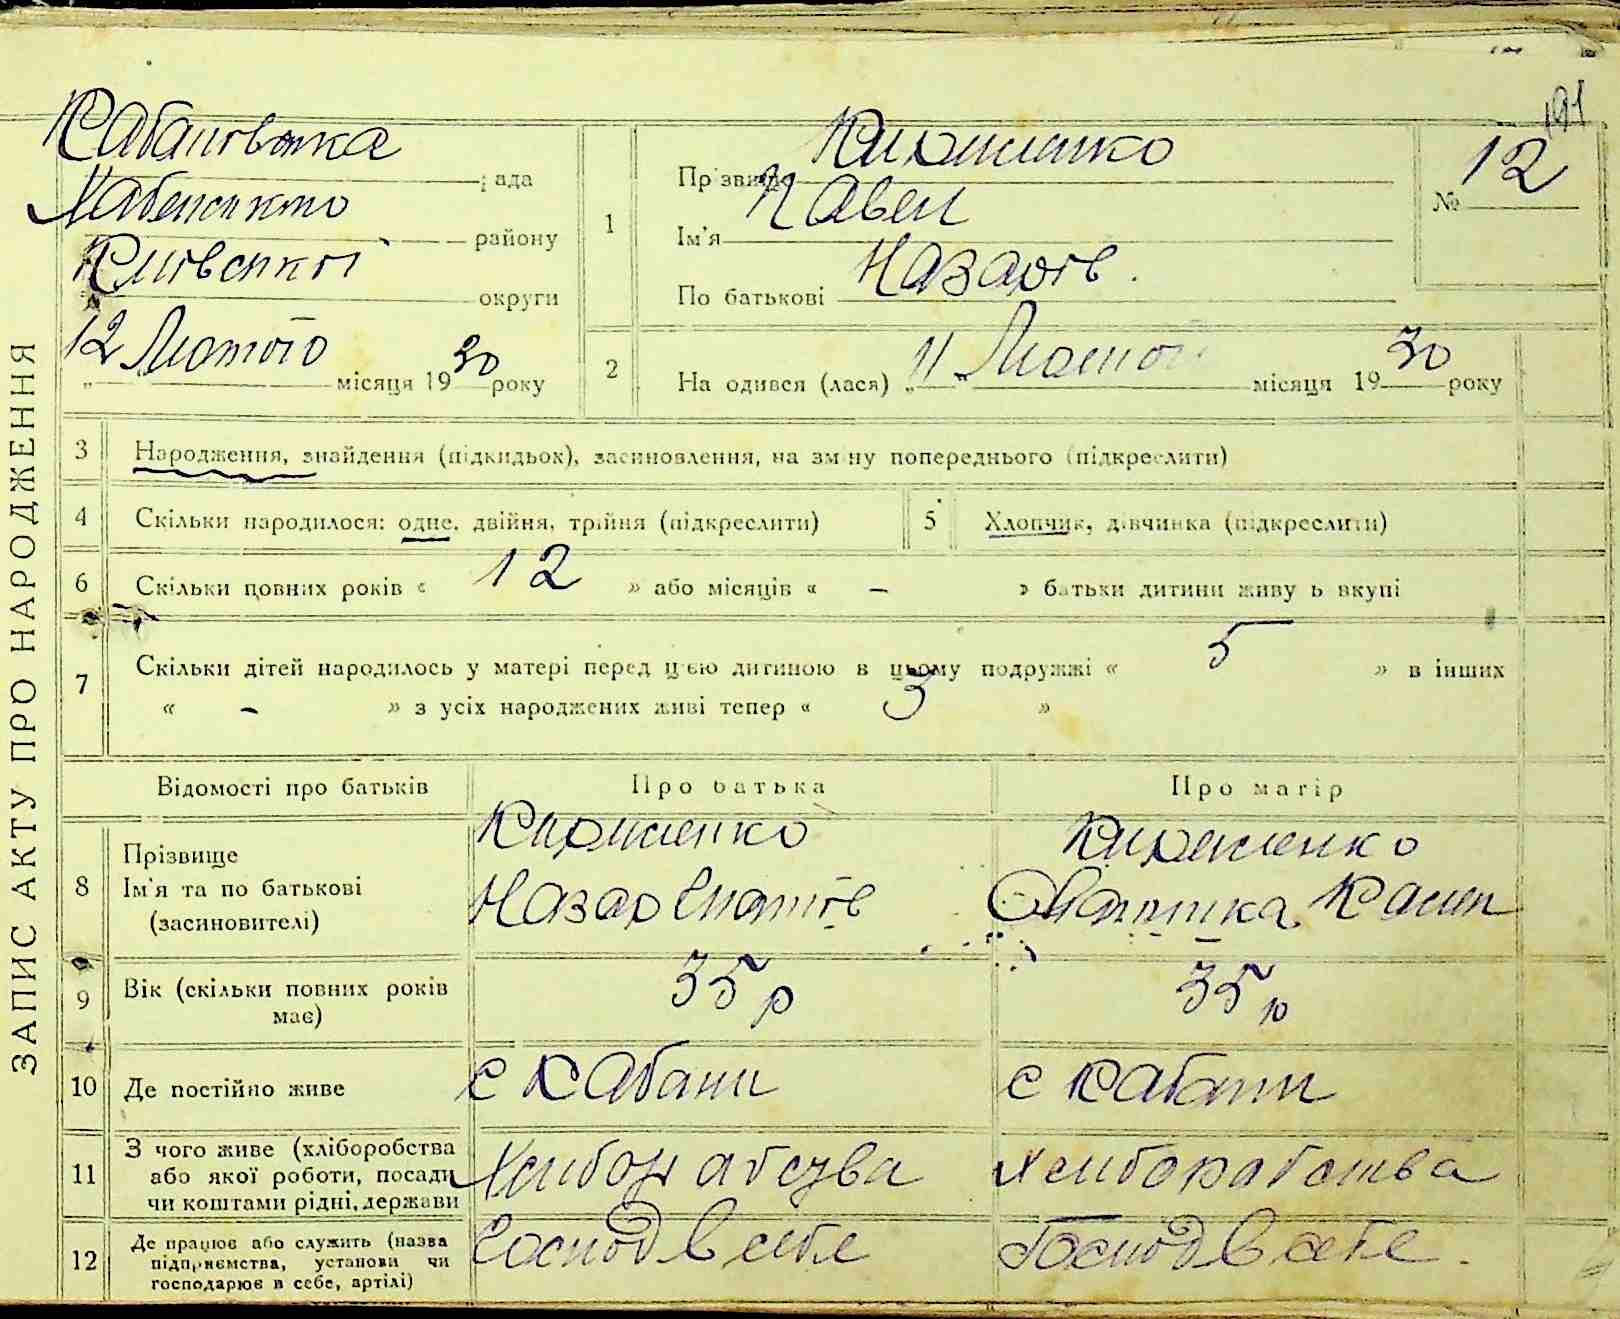 191
ЗАПИС АКТУ ПРО НАРОДЖЕННЯ
Кабанівська рада
Хабенського району
Київської округи
"12 Лютого місяця 1930 року
1 Прізвище Кириленко
Ім'я Павел
По батькові Назарів.
№ 12
2 Народився (лася) "11" Лютого місяця 1930 року
3 Народження, знайдення (підкидьок), засиновлення, на зміну попереднього (підкреслити)
4 Скільки народилося: одне, двійня, трійня (підкреслити)
5 Хлопчик, дівчинка (підкреслити)
6 Скільки повних років « 12 » або місяців « - » батьки дитини живуть вкупі
7 Скільки дітей народилось у матері перед цією дитиною в цьому подружжі « 5 » в інших
« - » з усіх народжених живі тепер « 3 »
Відомості про батьків Про батька Про матір
8 Прізвище
Ім'я та по батькові
(засиновителі)
Кириленко
Назар
Кириленко
9 Вік (скільки повних років
має)
35 р
35 р
10 Де постійно живе с Кабани с Кабани
11 З чого живе (хліборобства
або якої роботи, посади
чи коштами рідні, держави
Хлиборабства Хлиборабства
12 Де працює або служить (назва
підприємства, установи чи
господарює в себе, артілі)
Господ в себе Господ в себе.